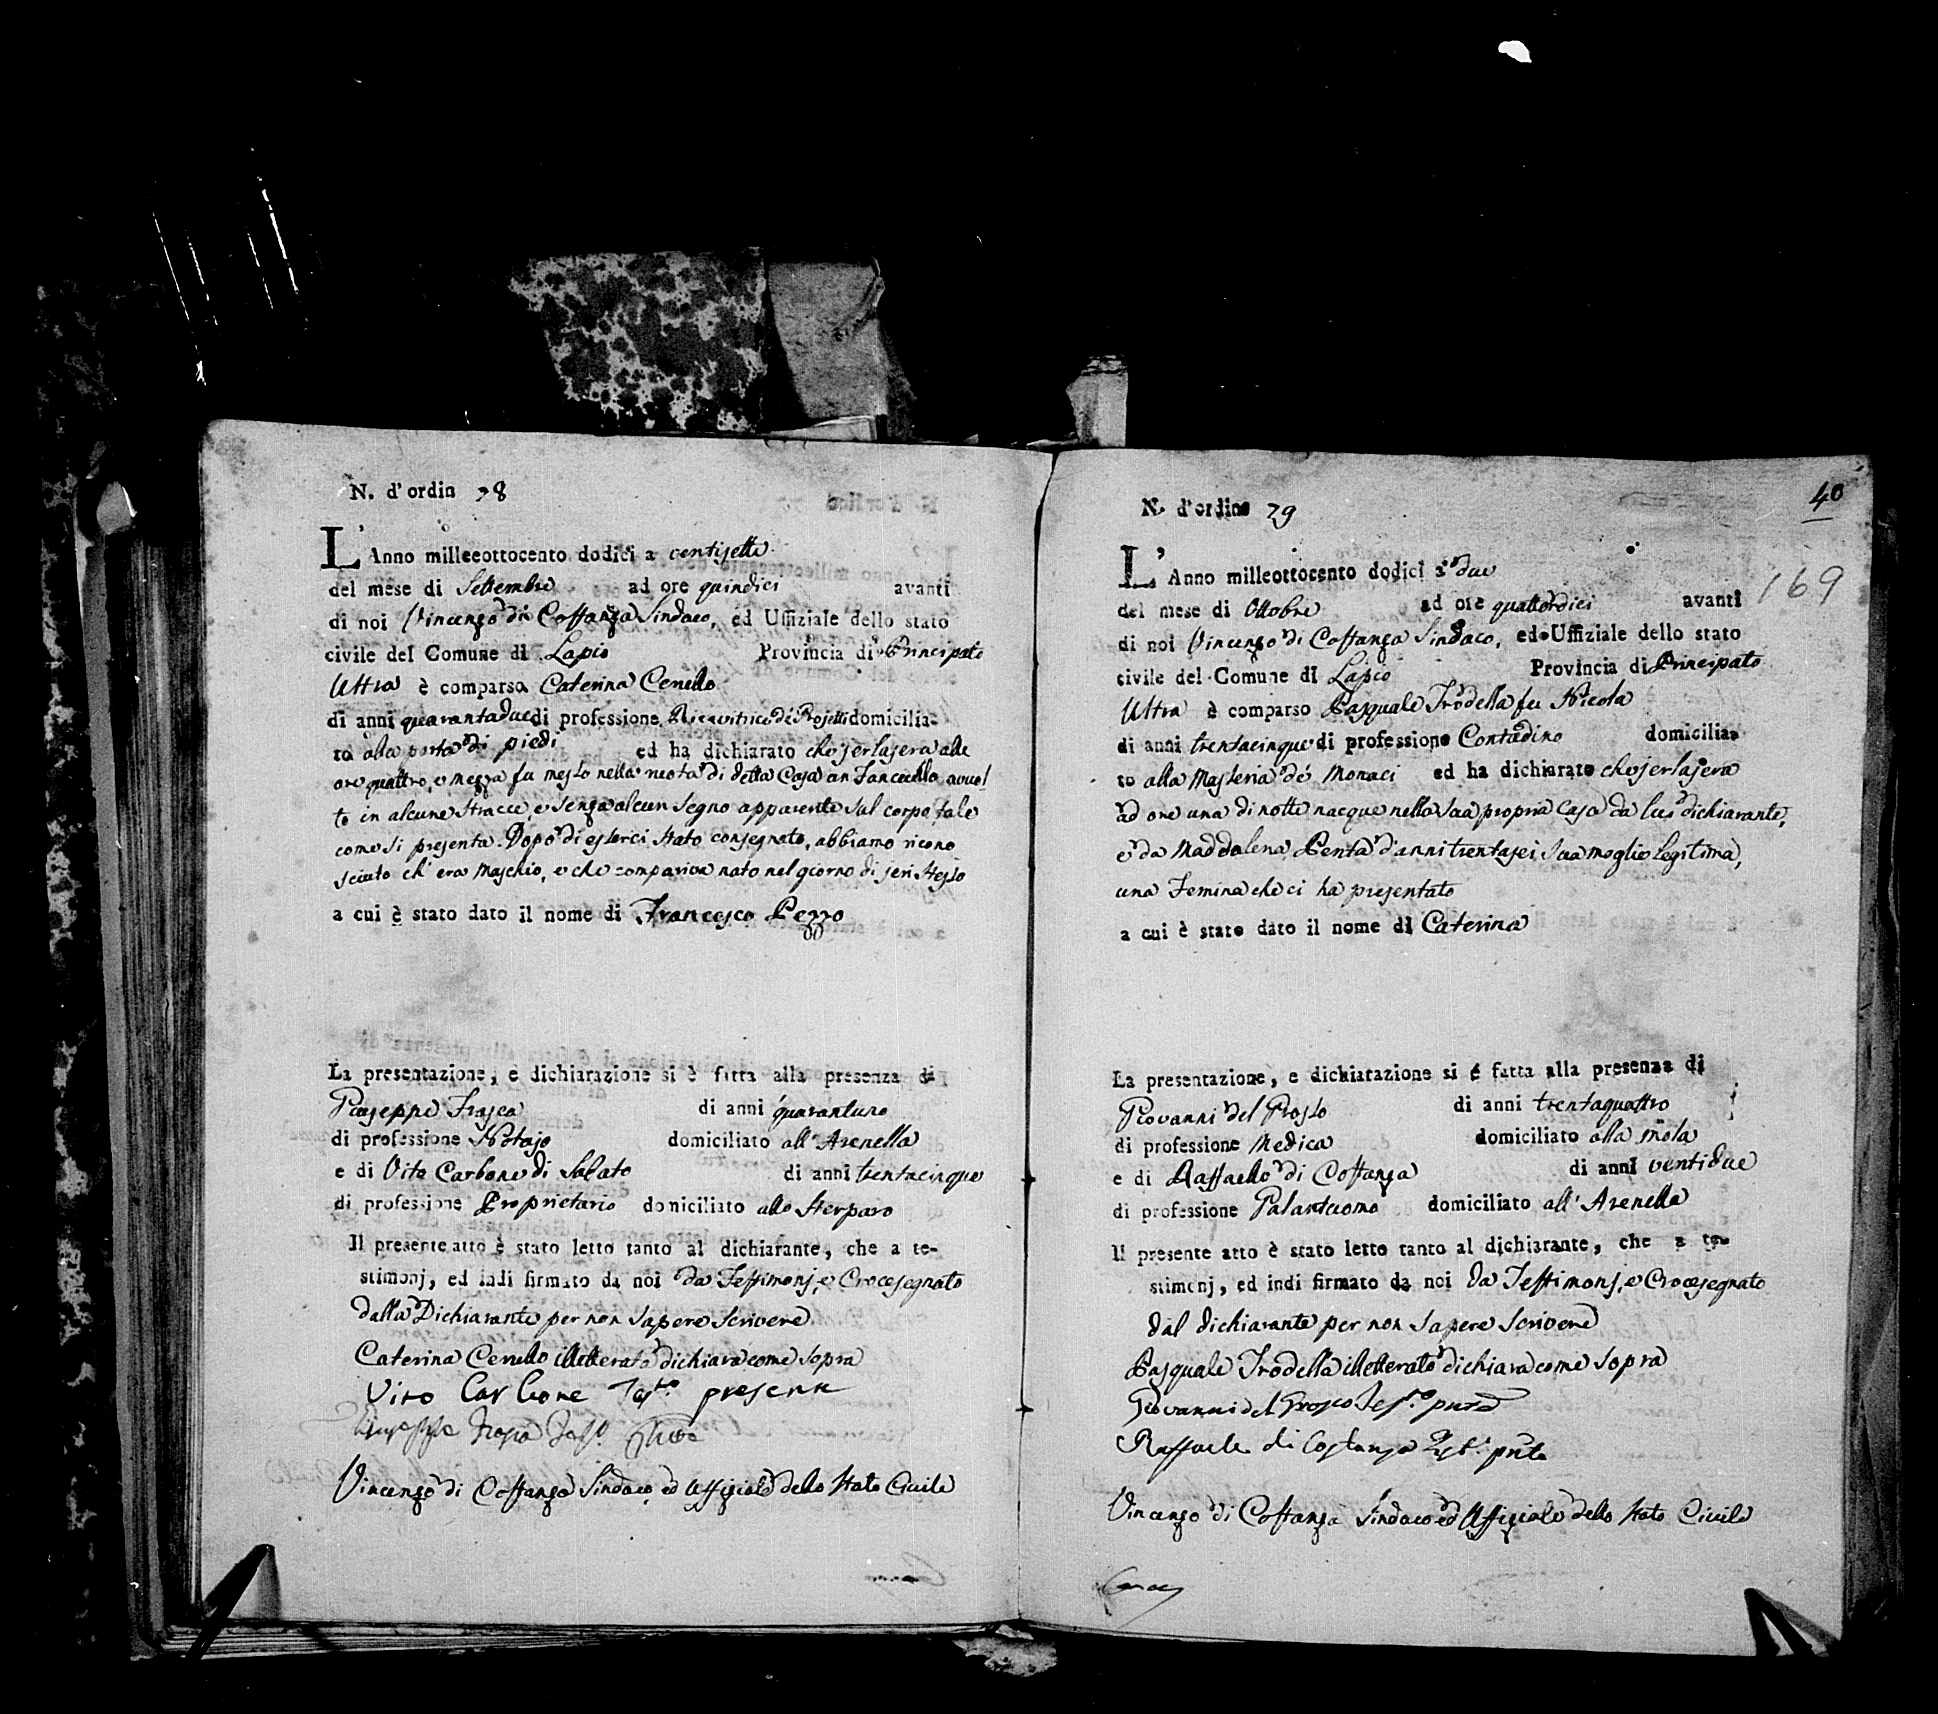 N. d'ordin 78
L'Anno milleeottocento dodici a ventisette
del mese di Settembre ad ore quindici avanti
di noi Vincenzo di Costanza Sindaco, ed Uffiziale dello stato
civile del Comune di Lapio Provincia di Principato
Ultra è comparsa Caterina Cenullo
di anni quarantadue di professione Ricevitrice de Projetti domicilia-
to alla porta di piedi ed ha dichiarato che jerlasera alle
ore quattro, e mezza fu messo nella ruota di detta Casa un Fanciullo avvol
to in alcune stracce, e senza alcun segno apparente sul corpo, tale
come si presenta. Dopo di esserci stato consegnato, abbiamo ricono
sciuto ch' era Maschio, e che compariva nato nel giorno di jeri stesso
a cui è stato dato il nome di Francesco Pezzo
La presentazione, e dichiarazione si è fatta alla presenza di
Giuseppe Frasca di anni quarantuno
di professione Notajo domiciliato all' Arenella
e di Vito Carbone di Sabato di anni trentacinque
di professione Proprietario domiciliato allo Sterparo
Il presente atto è stato letto tanto al dichiarante, che a te-
stimonj, ed indi firmato da noi da Testimonj, e Crocesegnato
dalla Dichiarante per non sapere scrivere
Caterina Cenullo illetterata dichiara come sopra
Vito Carbone Testo presente
Giuseppe Frasca Testo
Vincenzo di Costanza Sindaco ed Uffiziale dello Stato Civile
40
169
N. d'ordine 79
L'Anno milleottocento dodici a due
del mese di Ottobre ad ore quattordici avanti
di noi Vincenzo di Costanza Sindaco, ed Uffiziale dello stato
civile del Comune di Lapio Provincia di Principato
Ultra è comparso Pasquale Trodella fu Nicola
di anni trentacinque di professione Contadino domicilia-
to alla Masseria de' Monaci ed ha dichiarato che jerlasera
ad ore una di notte nacque nella sua propria Casa da lui dichiarante,
e da Maddalena Penta d'anni trentasei sua moglie legitima,
una Femina che ci ha presentato
a cui è stato dato il nome di Caterina
La presentazione, e dichiarazione si è fatta alla presenza di
Giovanni del Grosso di anni trentaquattro
di professione Medica domiciliato alla mola
e di Raffaello di Costanza di anni ventidue
di professione Galantuomo domiciliato all' Arenella
Il presente atto è stato letto tanto al dichiarante, che a te-
stimonj, ed indi firmato da noi da Testimonj, e Crocesegnato
dal dichiarante per non sapere scrivere
Pasquale Trodella illetterato dichiara come sopra
Giovanni del Grosso Testo pnte
Raffaele di Costanza Testo pnte
Vincenzo di Costanza Sindaco ed Uffiziale dello Stato Civile